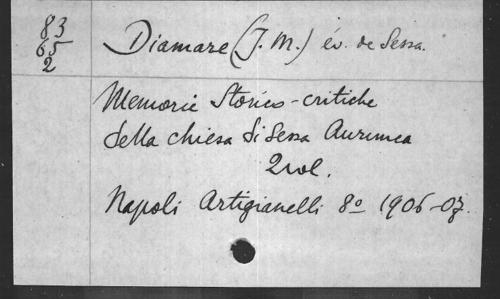 83
65
2
Diamare (J. M.) év. de Sessa.
Memorie Storico-critiche
della chiesa di Sessa Aurunca
2 vol.
Napoli Artigianelli 8º 1906-07.